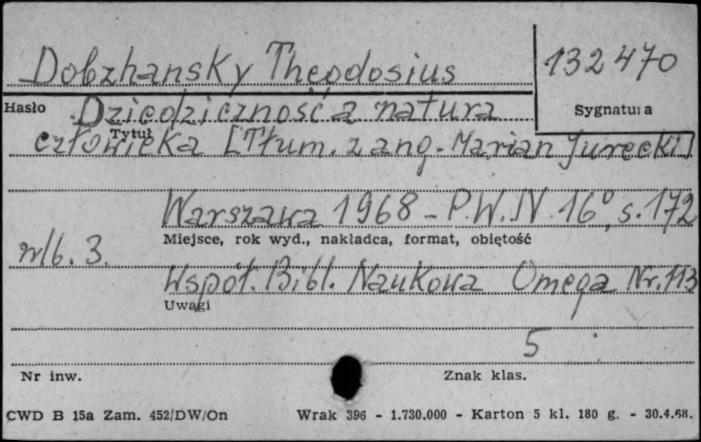 Dobzhansky Theodosius
132470
Hasło
Dziedziczność a natura
Sygnatura
Tytuł
człowieka [Tłum. z ang. Marian Jurecki]
Warszawa 1968 - P.W.N 16°, s. 172
Miejsce, rok wyd., nakładca, format, objętość
nlb. 3.
Współ. Bibl. Naukowa Omega Nr. 113
Uwagi
5
Nr inw.
Znak klas.
CWD B 15a Zam. 452/DW/On
Wrak 396 - 1.730.000 - Karton 5 kl. 180 g. - 30.4.68.